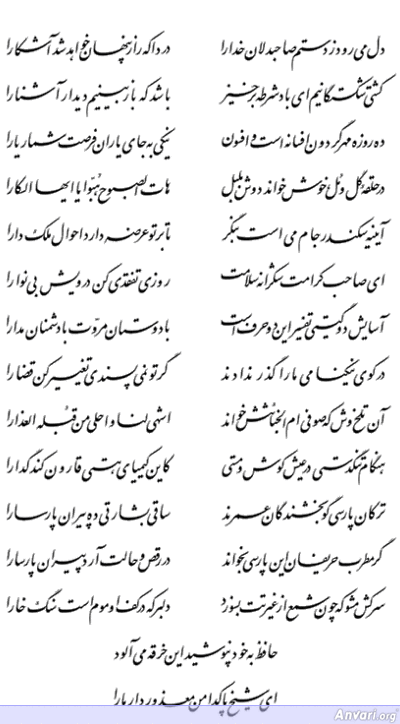 دل می رود ز دستم صاحبدلان خدا را دردا که راز پنهان خواهد شد آشکارا
کشتی شکستگانیم ای باد شرطه برخیز باشد که باز بینیم دیدار آشنا را
ده روزه مهر گردون افسانه است و افسون نیکی به جای یاران فرصت شمار یارا
در حلقه گل و مل خوش خواند دوش بلبل هات الصبوح هبوا یا ایها السکارا
آیینه سکندر جام می است بنگر تا بر تو عرضه دارد احوال ملک دارا
ای صاحب کرامت شکرانه سلامت روزی تفقدی کن درویش بی نوا را
آسایش دو گیتی تفسیر این دو حرف است با دوستان مروّت با دشمنان مدارا
در کوی نیکنامی ما را گذر ندادند گر تو نمی پسندی تغییر کن قضا را
آن تلخ وش که صوفی ام الخبائثش خواند اشهی لنا و احلی من قُبله العذارا
هنگام تنگدستی در عیش کوش و مستی کاین کیمیای هستی قارون کند گدا را
ترکان پارسی گو بخشندگان عمرند ساقی بشارتی ده پیران پارسا را
گر مطرب حریفان این پارسی بخواند در رقص و حالت آرد پیران پارسا را
سرکش مشو که چون شمع از غیرتت بسوزد دلبر که در کف او موم است سنگ خارا
حافظ به خود نپوشید این خرقه می آلود
ای شیخ پاکدامن معذور دار ما را
Anvari.org